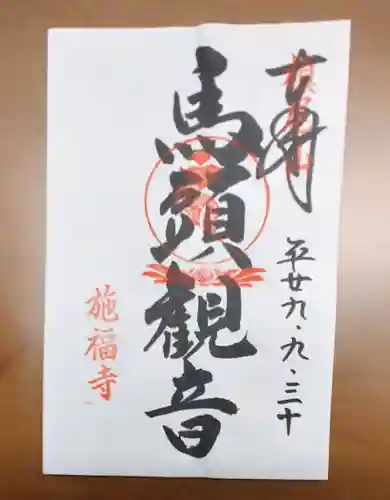 奉拝
槇尾山
平廿九・九・三十
馬頭観音
施福寺